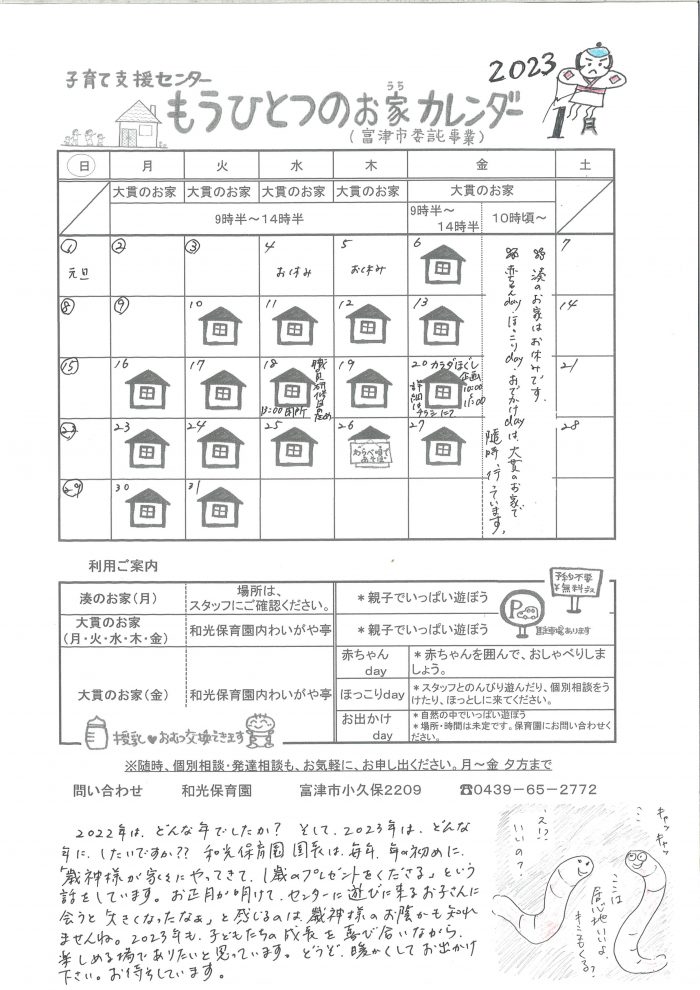 子育て支援センター
もうひとつのお家カレンダー
うち
(富津市委託事業)
2023
1月
日 月 火 水 木 金 土
大貫のお家 大貫のお家 大貫のお家 大貫のお家 大貫のお家
9時半～14時半 9時半～14時半 10時頃～
1 2 3 4 5 6 7
元旦 おやすみ お休み
8 9 10 11 12 13 14
15 16 17 18 19 20 21
13:00閉所
職員研修の為
カラダほぐし企画
10:00~11:00
詳細はチラシにて
22 23 24 25 26 27 28
わらべ唄であそぼ
29 30 31
湊のお家はお休みです。
赤ちゃんday、ほっこりday、おでかけdayは、大貫のお家で
随時、行っています。
利用ご案内
湊のお家(月) 場所は、スタッフにご確認ください。 *親子でいっぱい遊ぼう
大貫のお家(月・火・水・木・金) 和光保育園内わいがや亭 *親子でいっぱい遊ぼう
大貫のお家(金) 和光保育園内わいがや亭
赤ちゃんday *赤ちゃんを囲んで、おしゃべりしましょう。
ほっこりday *スタッフとのんびり遊んだり、個別相談をうけたり、ほっとしに来てください。
お出かけday *自然の中でいっぱい遊ぼう
*場所・時間は未定です。保育園にお問い合わせください。
予約不要
¥無料デス
P
駐車場あります
授乳♥おむつ交換できます
※随時、個別相談・発達相談も、お気軽に、お申し出ください。月～金 夕方まで
問い合わせ 和光保育園 富津市小久保2209 ☎0439-65-2772
2022年は、どんな年でしたか? そして、2023年は、どんな
年に、したいですか?? 和光保育園 園長は、毎年、年の初めに、
「歳神様が家々にやってきて、1歳のプレゼントをくださる」という
話をしています。お正月が明けて、センターに遊びに来るお子さんに
会うと「大きくなったなぁ」と感じるのは、歳神様のお陰かも知れ
ませんね。2023年も、子どもたちの成長を喜び合いながら、
楽しめる場でありたいと思っています。どうぞ、暖かくしてお出かけ
下さい。お待ちしています。
え!?
いいの?
キャッキャッ
ここは
居心地いいよ、
キミもくる?